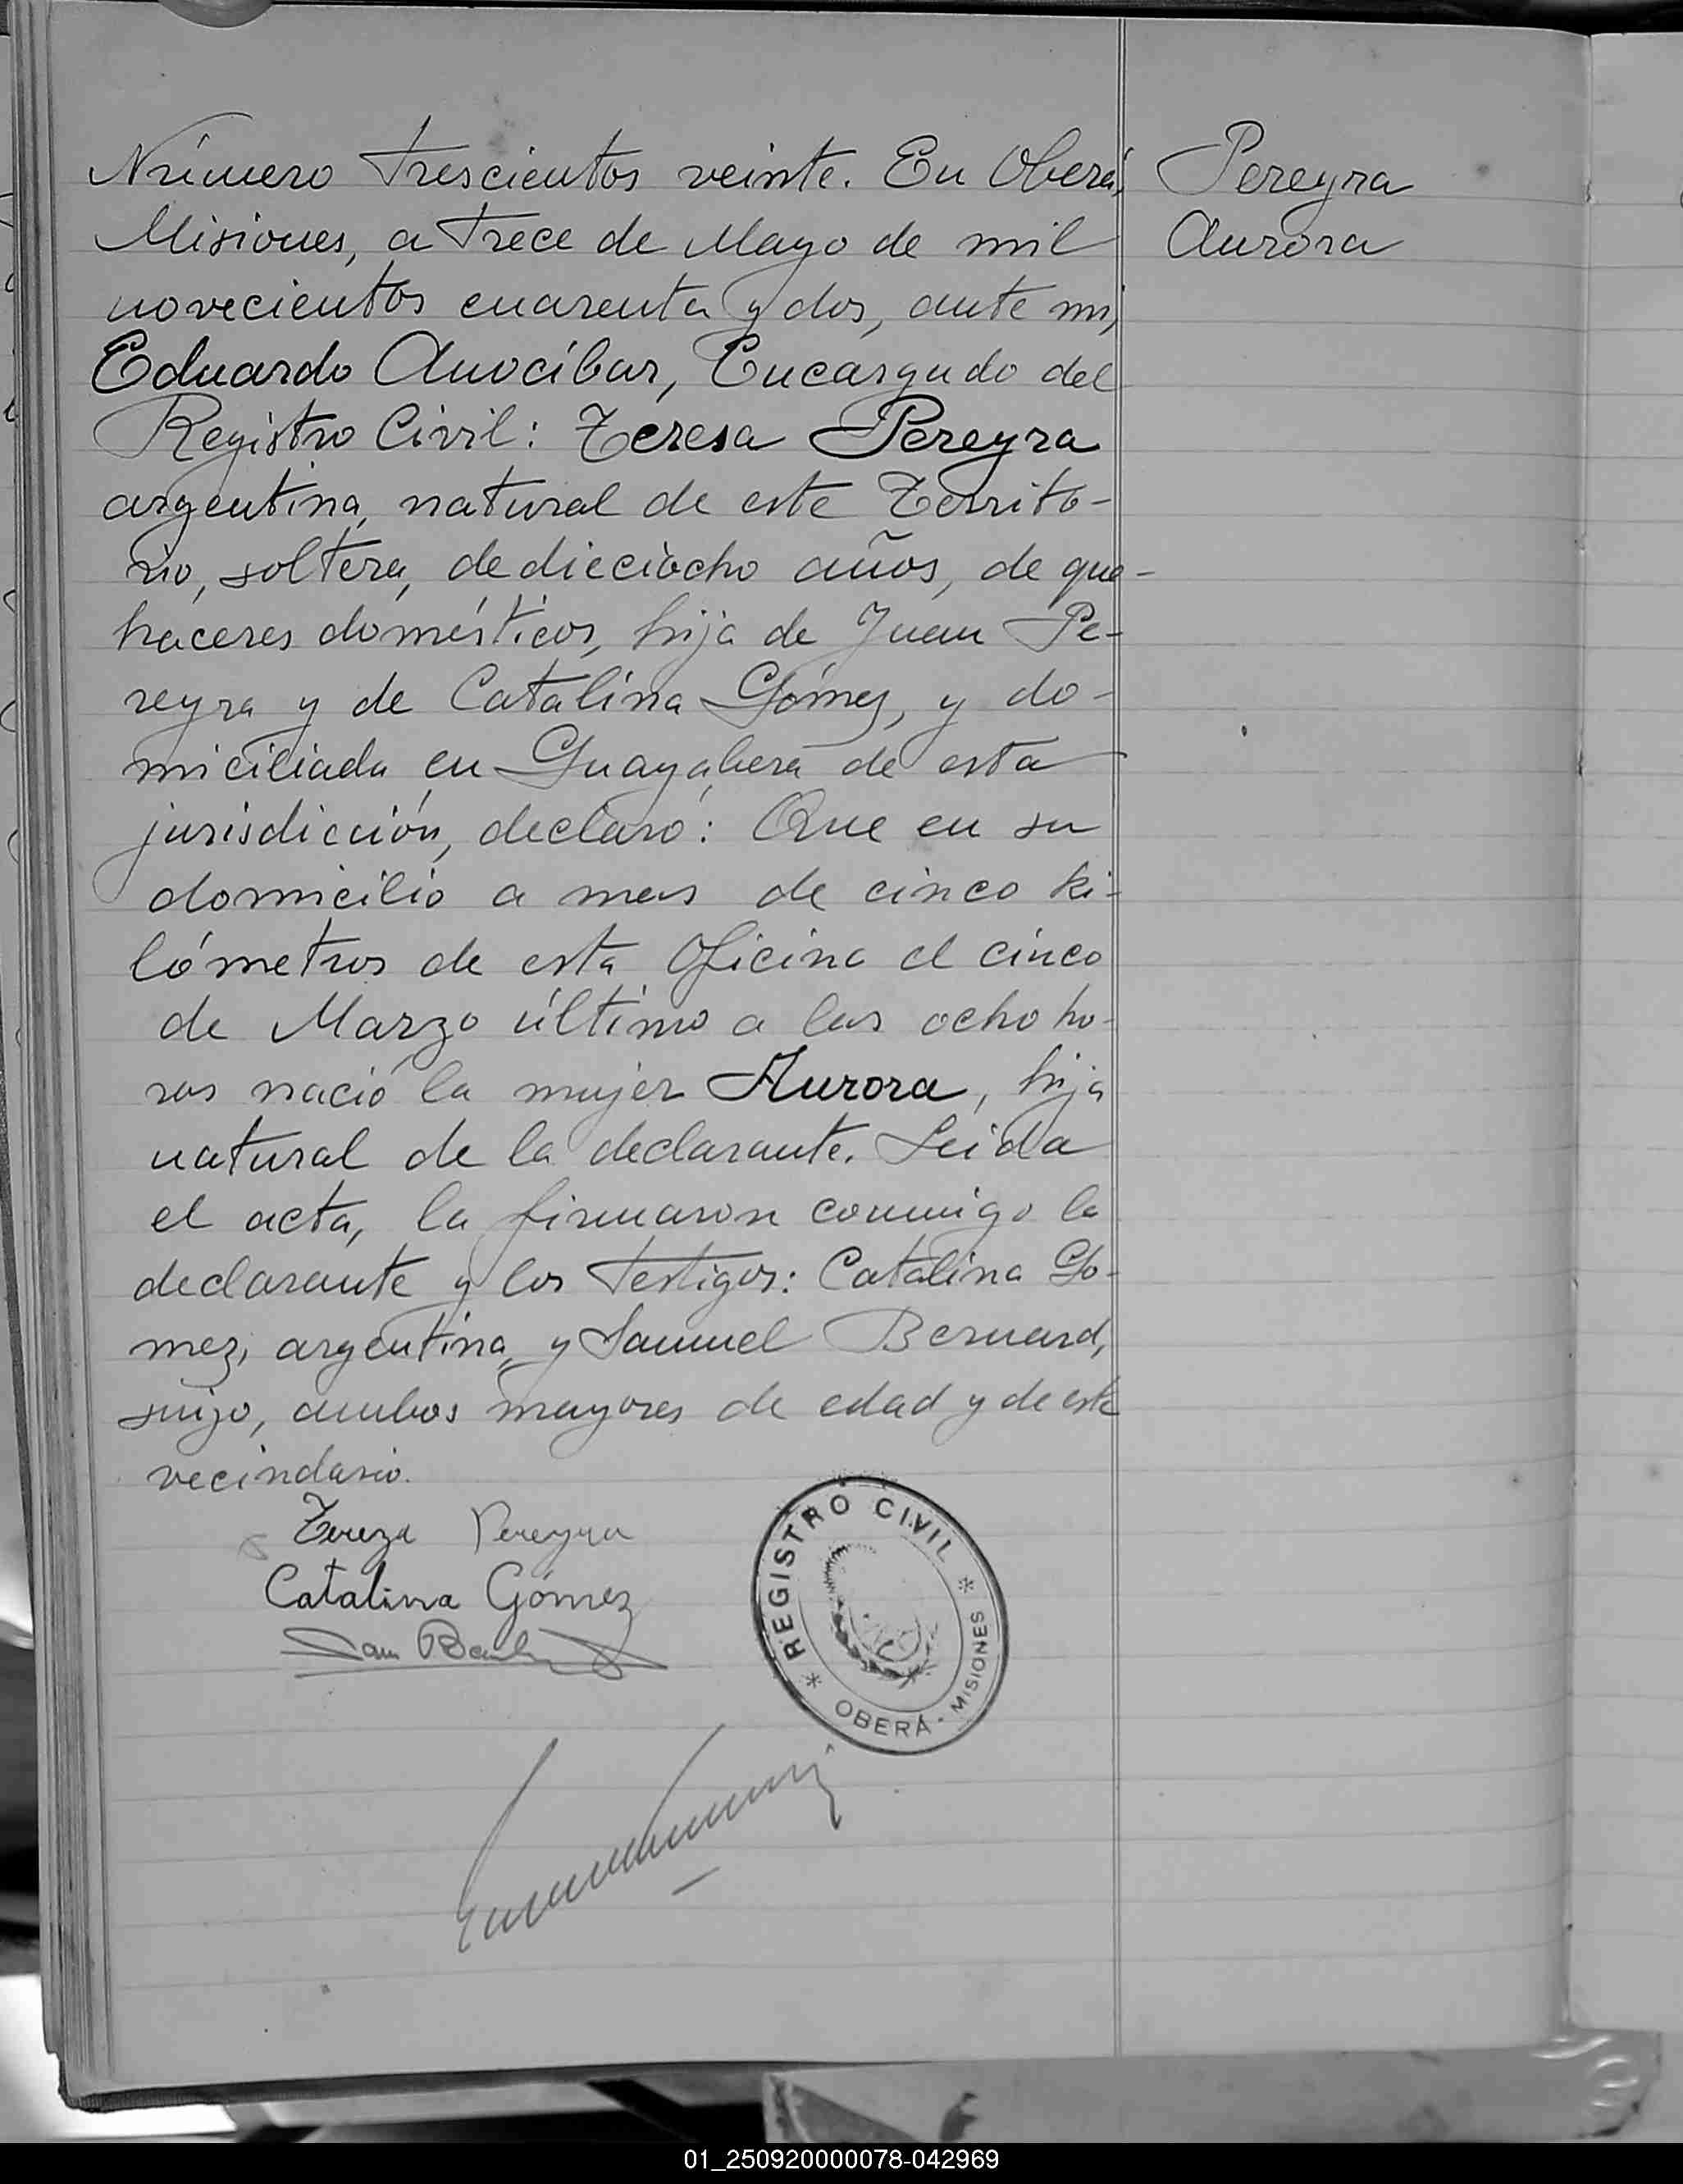 Número trescientos veinte. En Oberá,
Misiones, a trece de Mayo de mil
novecientos cuarenta y dos, ante mi,
Eduardo Anocíbar, Encargado del
Registro Civil: Teresa Pereyra
argentina, natural de este Territo-
rio, soltera, de dieciocho años, de que-
haceres domésticos, hija de Juan Pe-
reyra y de Catalina Gómez, y do-
miciliada en Guayabera de esta
jurisdicción, declaró: Que en su
domicilio a mas de cinco ki-
lómetros de esta Oficina el cinco
de Marzo último a las ocho ho-
ras nació la mujer Aurora, hija
natural de la declarante. Leida
el acta, la firmaron conmigo la
declarante y los testigos: Catalina Go-
mez, argentina, y Samuel Bernard,
suizo, ambos mayores de edad y de este
vecindario.
Pereyra
Aurora
Tereza Pereyra
Catalina Gómez
Sam
REGISTRO CIVIL
OBERÁ - MISIONES
01_250920000078-042969